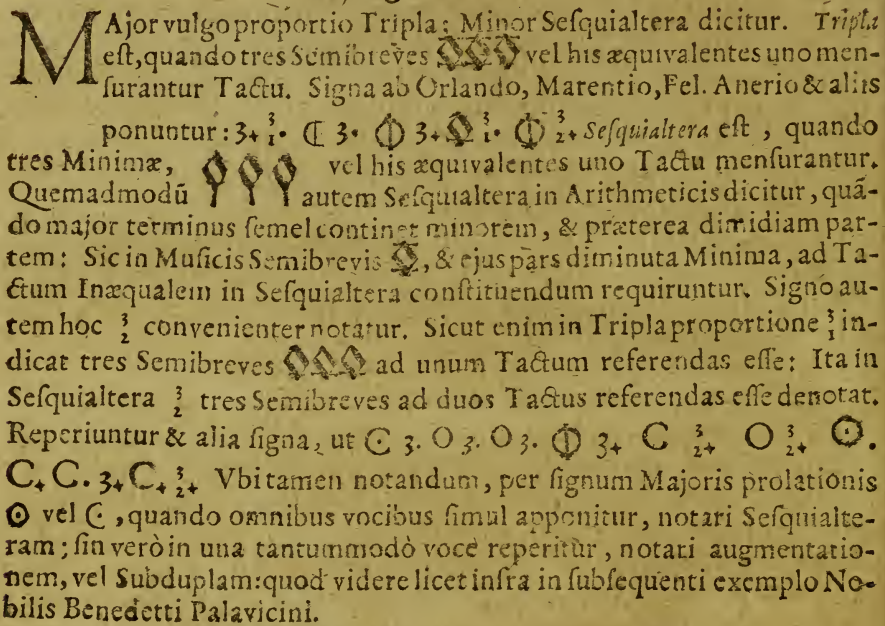 MAjor vulgo proportio Tripla; Minor Seſquialtera dicitur. Tripla
eſt, quando tres Semibreves vel his æquivalentes uno men-
ſurantur Tactu. Signa ab Orlando, Marentio, Fel. Anerio & aliis
ponuntur: 3. 3/1. ₵ 3. ⏀ 3. 3/1. ⏀ 3/2. Seſquialtera eſt, quando
tres Minimæ, vel his æquivalentes uno Tactu menſurantur.
Quemadmodū autem Seſquialtera in Arithmeticis dicitur, quā-
do major terminus ſemel continet minorem, & præterea dimidiam par-
tem: Sic in Muſicis Semibrevis, & ejus pars diminuta Minima, ad Ta-
ctum Inæqualem in Seſquialtera conſtituendum requiruntur. Signo au-
tem hoc 3/2 convenienter notatur. Sicut enim in Tripla proportione 3/1 in-
dicat tres Semibreves ad unum Tactum referendas eſſe: Ita in
Seſquialtera 3/2 tres Semibreves ad duos Tactus referendas eſſe denotat.
Reperiuntur & alia ſigna, ut C 3. O 3. O 3. ⏀ 3. C 3/2. O 3/2. ʘ.
C. C. 3. C. 3/2. Vbi tamen notandum, per ſignum Majoris prolationis
ʘ vel C, quando omnibus vocibus ſimul apponitur, notari Seſquialte-
ram; ſin verò in una tantummodò voce reperitùr, notari augmentatio-
nem, vel Subduplam: quod videre licet infra in ſubſequenti exemplo No-
bilis Benedetti Palavicini.